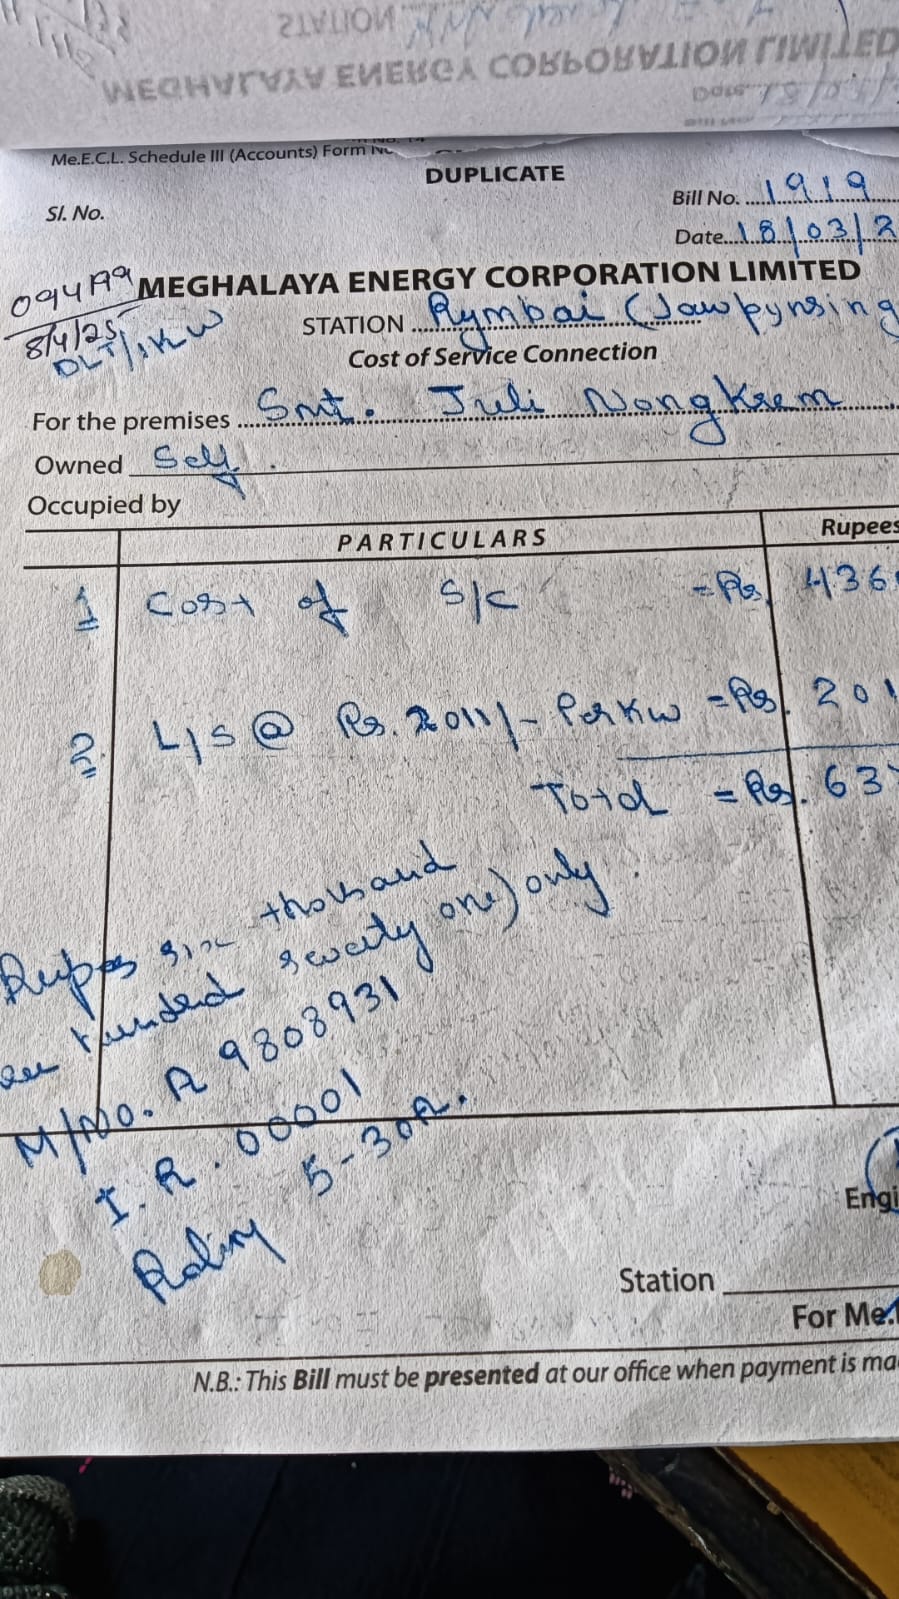 STATION
MEGHALAYA ENERGY CORPORATION LIMITED
Date
Me.E.C.L. Schedule III (Accounts) Form No
DUPLICATE
Bill No. 1919
Sl. No.
Date 18/03/2
MEGHALAYA ENERGY CORPORATION LIMITED
8/4/25
DLT/1KW
STATION Rymbai (Jawpynsing
Cost of Service Connection
For the premises Smt. Juli Nongkrem
Owned Self.
Occupied by
PARTICULARS Rupees
1 Cost of S/C = Rs. 436
2. L/S @ Rs. 2011/- Per KW = Rs. 201
Total = Rs. 637
Rupees six thousand
hundred seventy one) only.
M/No. A 9808931
I.R. 00001
Rating 5-30A.
Engi
Station
For Me.
N.B.: This Bill must be presented at our office when payment is ma